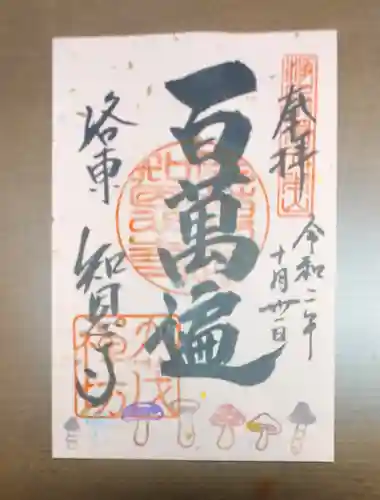 奉拝
令和二年
十月卅一日
百萬遍
洛東
知恩寺